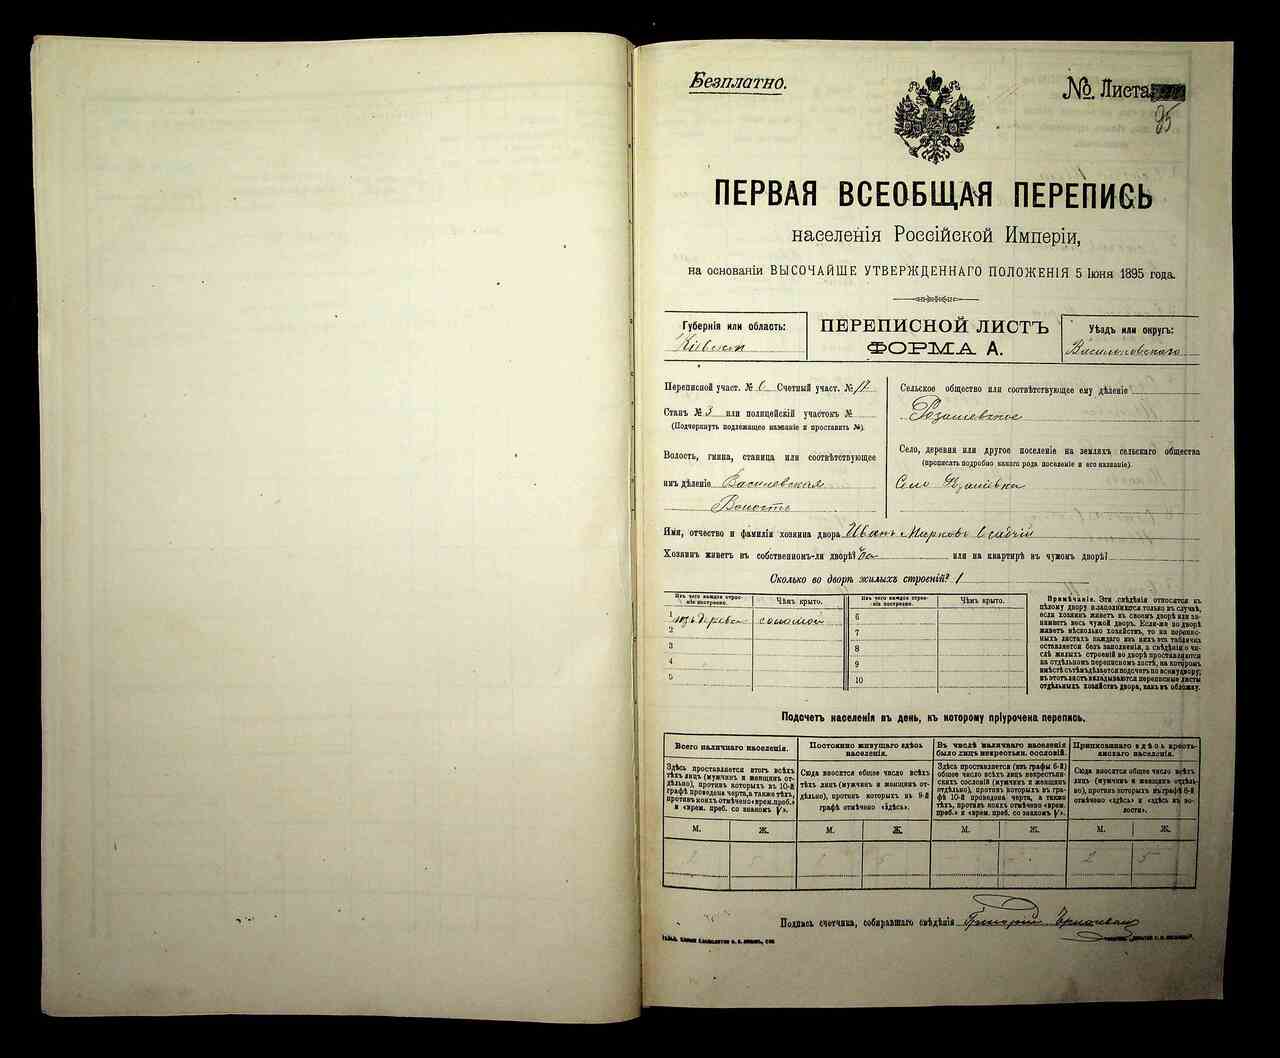 Безплатно.
№ Листа
95
ПЕРВАЯ ВСЕОБЩАЯ ПЕРЕПИСЬ
населенія Россійской Имперіи,
на основаніи ВЫСОЧАЙШЕ УТВЕРЖДЕННАГО ПОЛОЖЕНІЯ 5 Іюня 1895 года.
Губернія или область:
ПЕРЕПИСНОЙ ЛИСТЪ
ФОРМА А.
Уѣздъ или округъ:
Васильковскаго
Переписной участ. № 6 Счетный участ. №
Станъ № 3 или полицейскій участокъ №
(Подчеркнуть подлежащее названіе и проставить №).
Волость, гмина, станица или соотвѣтствующее
имъ дѣленіе
Волость
Сельское общество или соотвѣтствующее ему дѣленіе
Село, деревня или другое поселеніе на земляхъ сельскаго общества
(прописать подробно какого рода поселеніе и его названіе).
Село
Имя, отчество и фамилія хозяина двора Иванъ Марковъ
Хозяинъ живетъ въ собственномъ-ли дворѣ? да или на квартирѣ въ чужомъ дворѣ?
Сколько во дворѣ жилыхъ строеній? 1
Изъ чего каждое строеніе построено.
Чѣмъ крыто.
Изъ чего каждое строеніе построено.
Чѣмъ крыто.
1 изъ дерева соломой
2
3
4
5
6
7
8
9
10
Примѣчаніе. Эти свѣдѣнія относятся къ
цѣлому двору и заполняются только въ случаѣ,
если хозяинъ живетъ въ своемъ дворѣ или за-
нимаетъ весь чужой дворъ. Если-же во дворѣ
живетъ нѣсколько хозяйствъ, то на перепис-
ныхъ листахъ каждаго изъ нихъ эта табличка
оставляется безъ заполненія, а свѣдѣнія о чи-
слѣ жилыхъ строеній во дворѣ проставляются
на отдѣльномъ переписномъ листѣ, на которомъ
вмѣстѣ съ тѣмъ дѣлается подсчетъ по всему двору;
въ этотъ листъ вкладываются переписные листы
отдѣльныхъ хозяйствъ двора, какъ въ обложку.
Подсчетъ населенія въ день, къ которому пріурочена перепись.
Всего наличнаго населенія.
Здѣсь проставляется итогъ всѣхъ
тѣхъ лицъ (мужчинъ и женщинъ от-
дѣльно), противъ которыхъ въ 10-й
графѣ проведена черта, а также тѣхъ,
противъ коихъ отмѣчено «врем. преб.»
и «врем. преб. со знакомъ V».
Постоянно живущаго здѣсь
населенія.
Сюда вносится общее число всѣхъ
тѣхъ лицъ (мужчинъ и женщинъ от-
дѣльно), противъ которыхъ въ 9-й
графѣ отмѣчено «здѣсь».
Въ числѣ наличнаго населенія
было лицъ некрестьян. сословій.
Здѣсь проставляется (изъ графы 6-й)
общее число всѣхъ лицъ некрестьян-
скихъ сословій (мужчинъ и женщинъ
отдѣльно), противъ которыхъ въ гра-
фѣ 10-й проведена черта, а также
тѣхъ, противъ коихъ отмѣчено «врем.
преб.» и «врем. преб. со знакомъ V».
Приписаннаго здѣсь кресть-
янскаго населенія.
Сюда вносится общее число всѣхъ
лицъ (мужчинъ и женщинъ отдѣль-
но), противъ которыхъ въ графѣ 8-й
отмѣчено «здѣсь» и «здѣсь въ во-
лости».
М. Ж. М. Ж. М. Ж. М. Ж.
2 5 2 5 - - 2 5
Подпись счетчика, собиравшаго свѣдѣнія Григорій